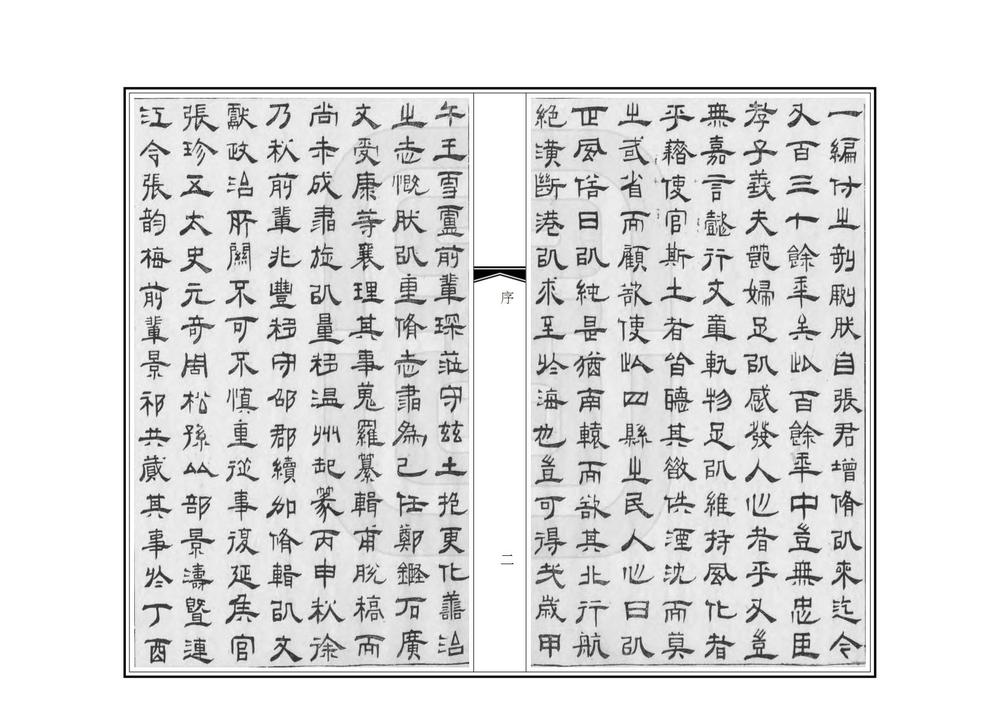 一編付之剞劂肰自張君增脩㠯來迄今
又百三十餘年矣此百餘年中豈無忠臣
孝子義夫節婦足㠯感發人心者乎又豈
無嘉言懿行文章軌物足㠯維持風化者
乎藉使官斯土者皆聽其散佚湮沈而莫
之或省而顧欲使此四縣之民人心日㠯
正風俗日㠯純是猶南轅而欲其北行航
絕潢斷港㠯求至於海也豈可得哉歲甲
序
二
午王雪廬前輩琛莅守茲土抱更化譱治
之志慨肰㠯重脩志書為己任鄭鏗石廣
文受康等襄理其事蒐羅纂輯甫脫稿而
尚未成書旋㠯量移溫州起篆丙申秋徐
乃秋前輩兆豐移守邵郡續加脩輯㠯文
獻政治所關不可不慎重從事復延侯官
張珍五太史元奇周松孫比部景濤暨連
江令張韵梅前輩景祁共蕆其事於丁酉